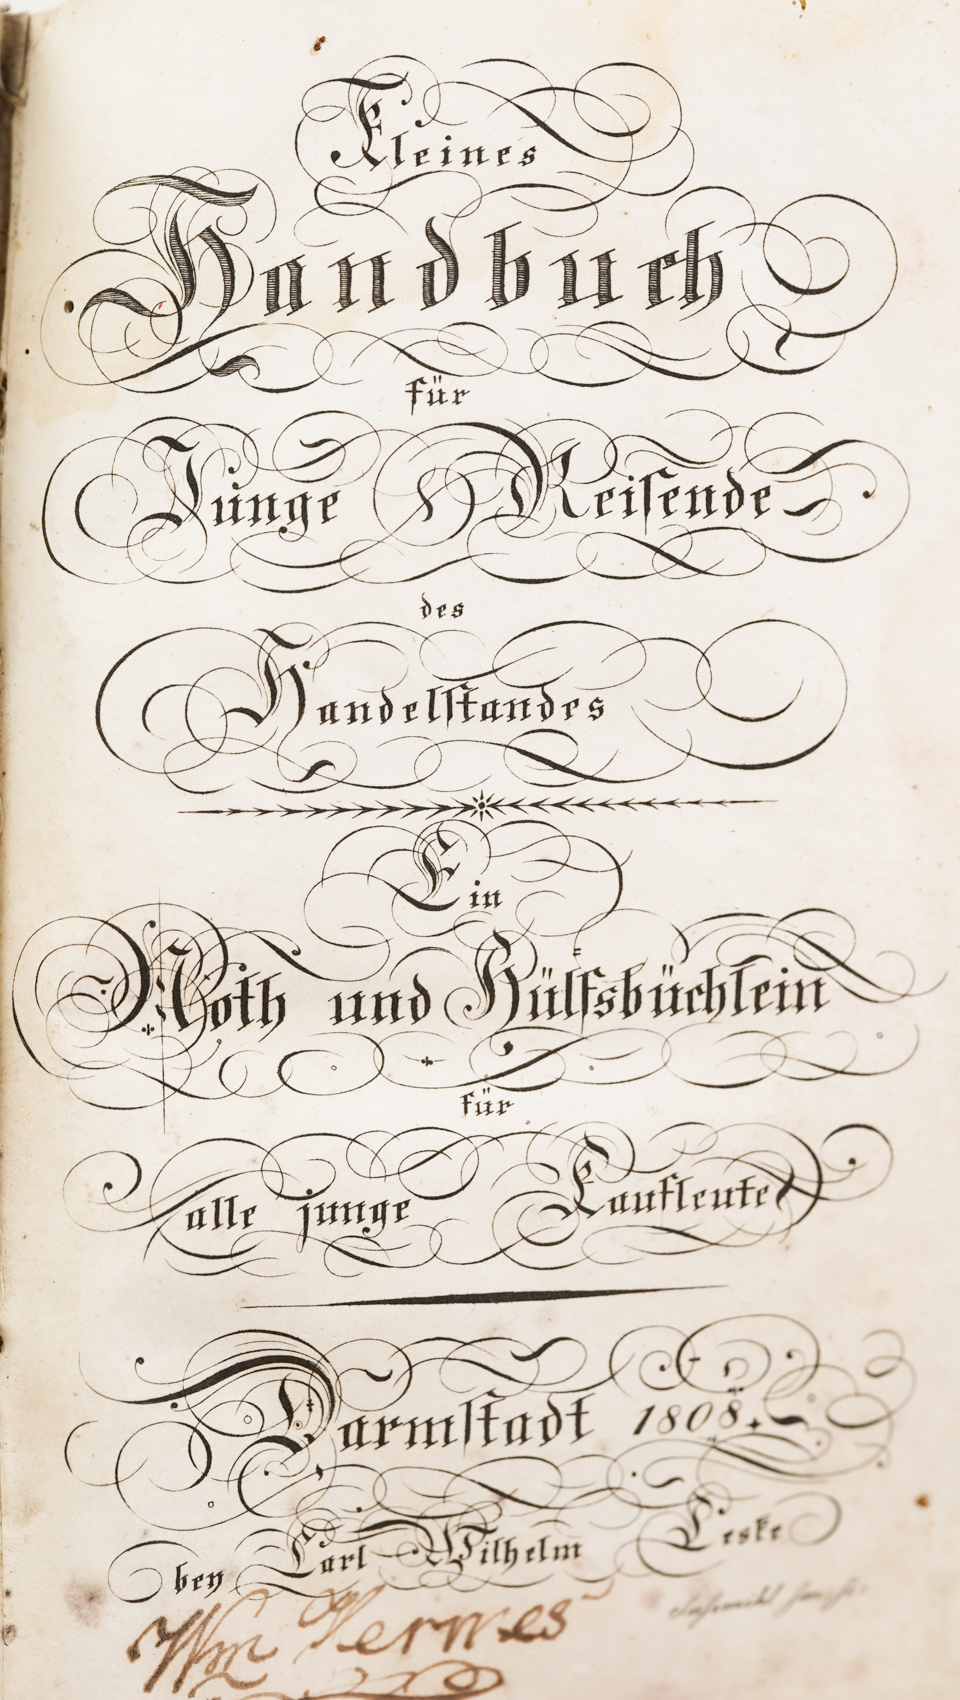 Kleines
Handbuch
für
Junge Reiſende
des
Handelſtandes
Ein
Noth und Hülfsbüchlein
für
alle junge Kaufleute
Darmſtadt 1808.
bey Carl Wilhelm Leske
Wm